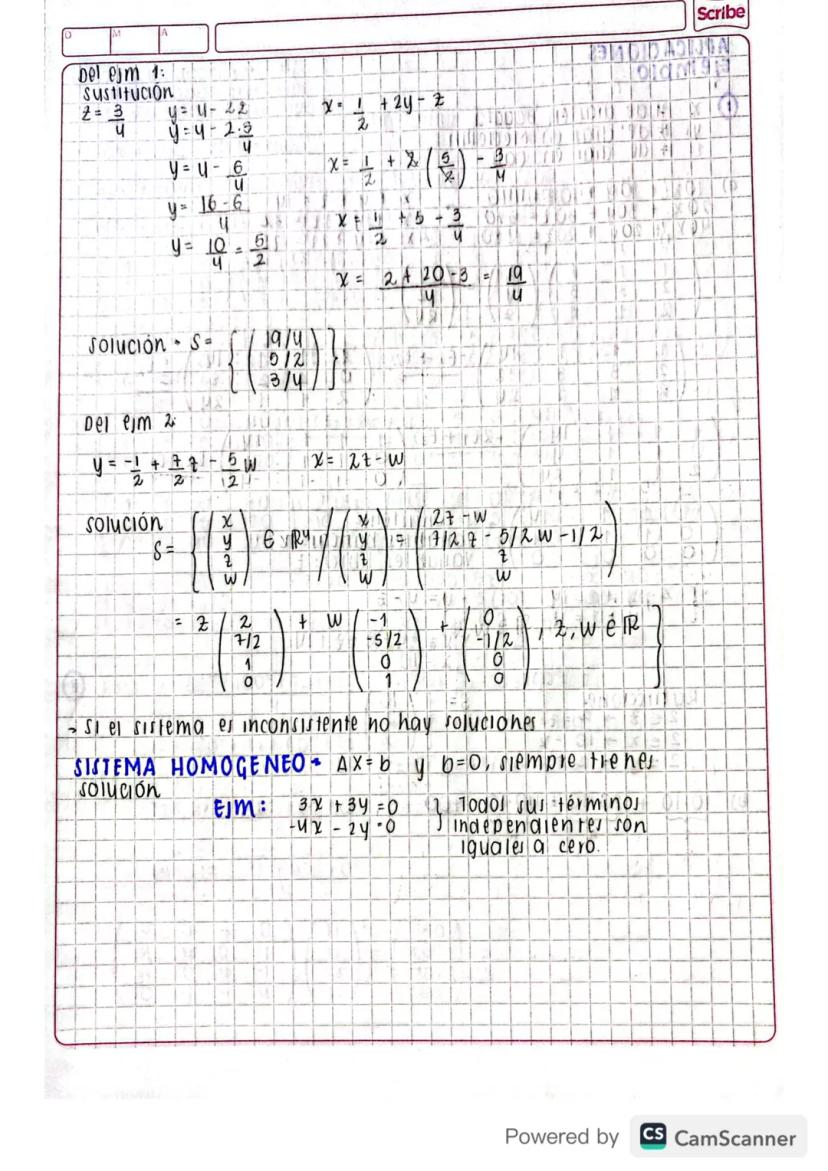 Scribe
D M A
Del ejm 1:
sustitución
z = 3/4 y = 4 - 2z x = 1/2 + 2y - z
y = 4 - 2·3/4
y = 4 - 6/4 x = 1/2 + 2 (5/2) - 3/4
y = 16-6/4 x = 1/2 + 5 - 3/4
y = 10/4 = 5/2
x = 2 + 20 - 3 / 4 = 19/4
Solución • S = { ( 19/4
5/2
3/4 ) }
Del ejm 2:
y = -1/2 + 7/2 z - 5/2 w x = 2z - w
solución
S = { ( x y z w ) ∈ ℝ4 / ( x y z w ) = ( 2z - w
7/2 z - 5/2 w - 1/2
z
w )
= z ( 2 7/2 1 0 ) + w ( -1 -5/2 0 1 ) + ( 0 -1/2 0 0 ) , z, w ∈ ℝ }
→ si el sistema es inconsistente no hay soluciones
SISTEMA HOMOGENEO • AX = b y b=0, siempre tienes
solución
EJM: 3x + 3y = 0 } Todos sus términos
-4x - 2y = 0 independientes son
iguales a cero.
Powered by CS CamScanner